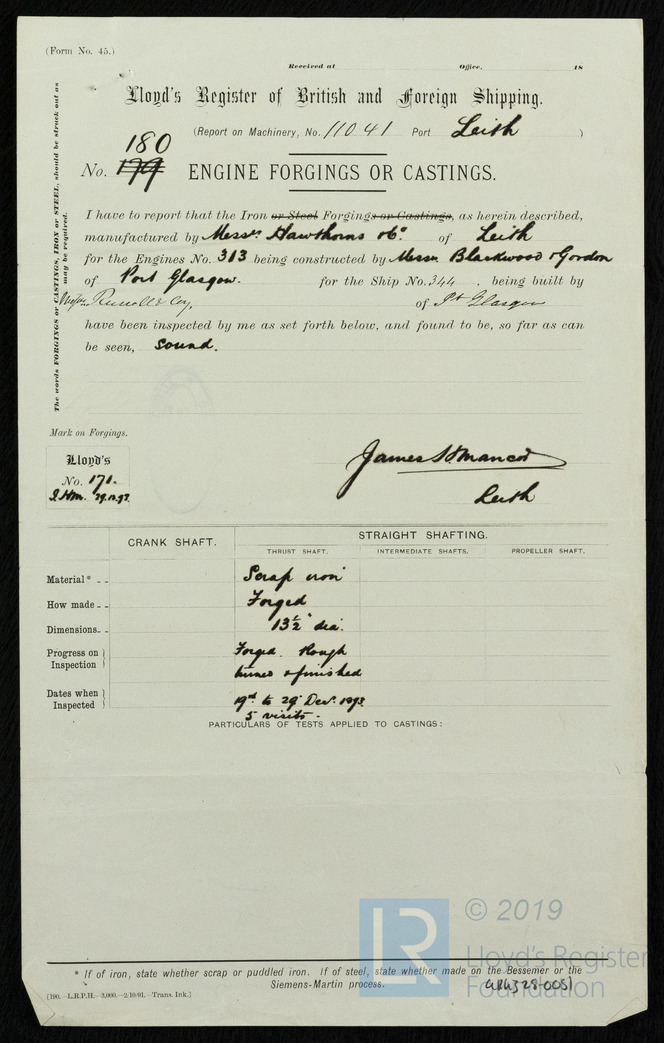 (Form No. 45.)
Received at Office, 18
Lloyd's Register of British and Foreign Shipping.
(Report on Machinery, No. 11041 Port Leith )
180
No. 179 ENGINE FORGINGS OR CASTINGS.
The words FORGINGS or CASTINGS, IRON or STEEL, should be struck out as may be required.
I have to report that the Iron or Steel Forgings or Castings, as herein described,
manufactured by Messrs Hawthorns & Co. of Leith
for the Engines No. 313 being constructed by Messrs Blackwood & Gordon
of Port Glasgow. for the Ship No. 344, being built by
Messrs Russell & Coy, of Pt Glasgow
have been inspected by me as set forth below, and found to be, so far as can
be seen, sound.
Mark on Forgings.
Lloyd's
No. 171.
J.H.M. 29.12.93.
James H Mancor
Leith
CRANK SHAFT. STRAIGHT SHAFTING.
THRUST SHAFT. INTERMEDIATE SHAFTS. PROPELLER SHAFT.
Material* - - Scrap iron
How made - - Forged
Dimensions - - 13½" dia.
Progress on Inspection Forged. Rough
turned & finished
Dates when Inspected 19th to 29 Decr. 1893
5 visits.
PARTICULARS OF TESTS APPLIED TO CASTINGS:
* If of iron, state whether scrap or puddled iron. If of steel, state whether made on the Bessemer or the
Siemens-Martin process.
[190.—L.R.P.H.—3,000.—2/10/91.—Trans. Ink.]
LR
© 2019
Lloyd's Register
Foundation